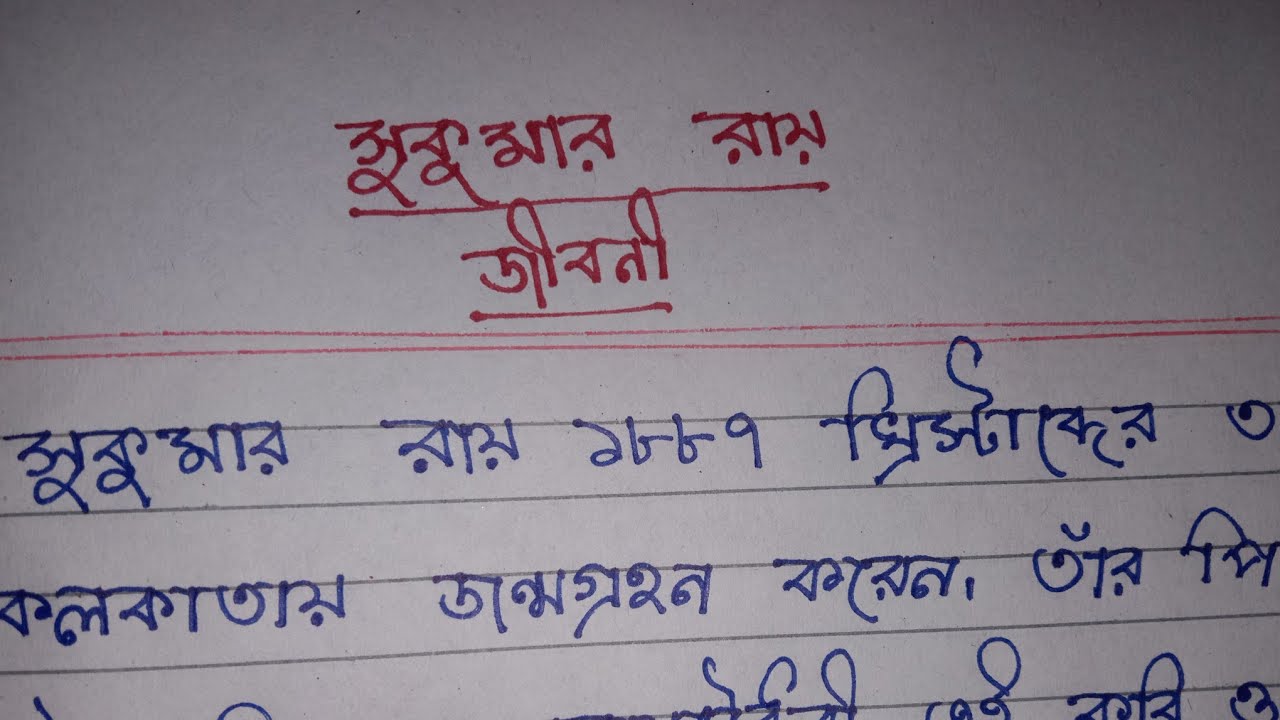 সুকুমার রায়
জীবনী
সুকুমার রায় ১৮৮৭ খ্রিস্টাব্দের ৩
কলকাতায় জন্মগ্রহন করেন। তাঁর পি
এই কবি ও